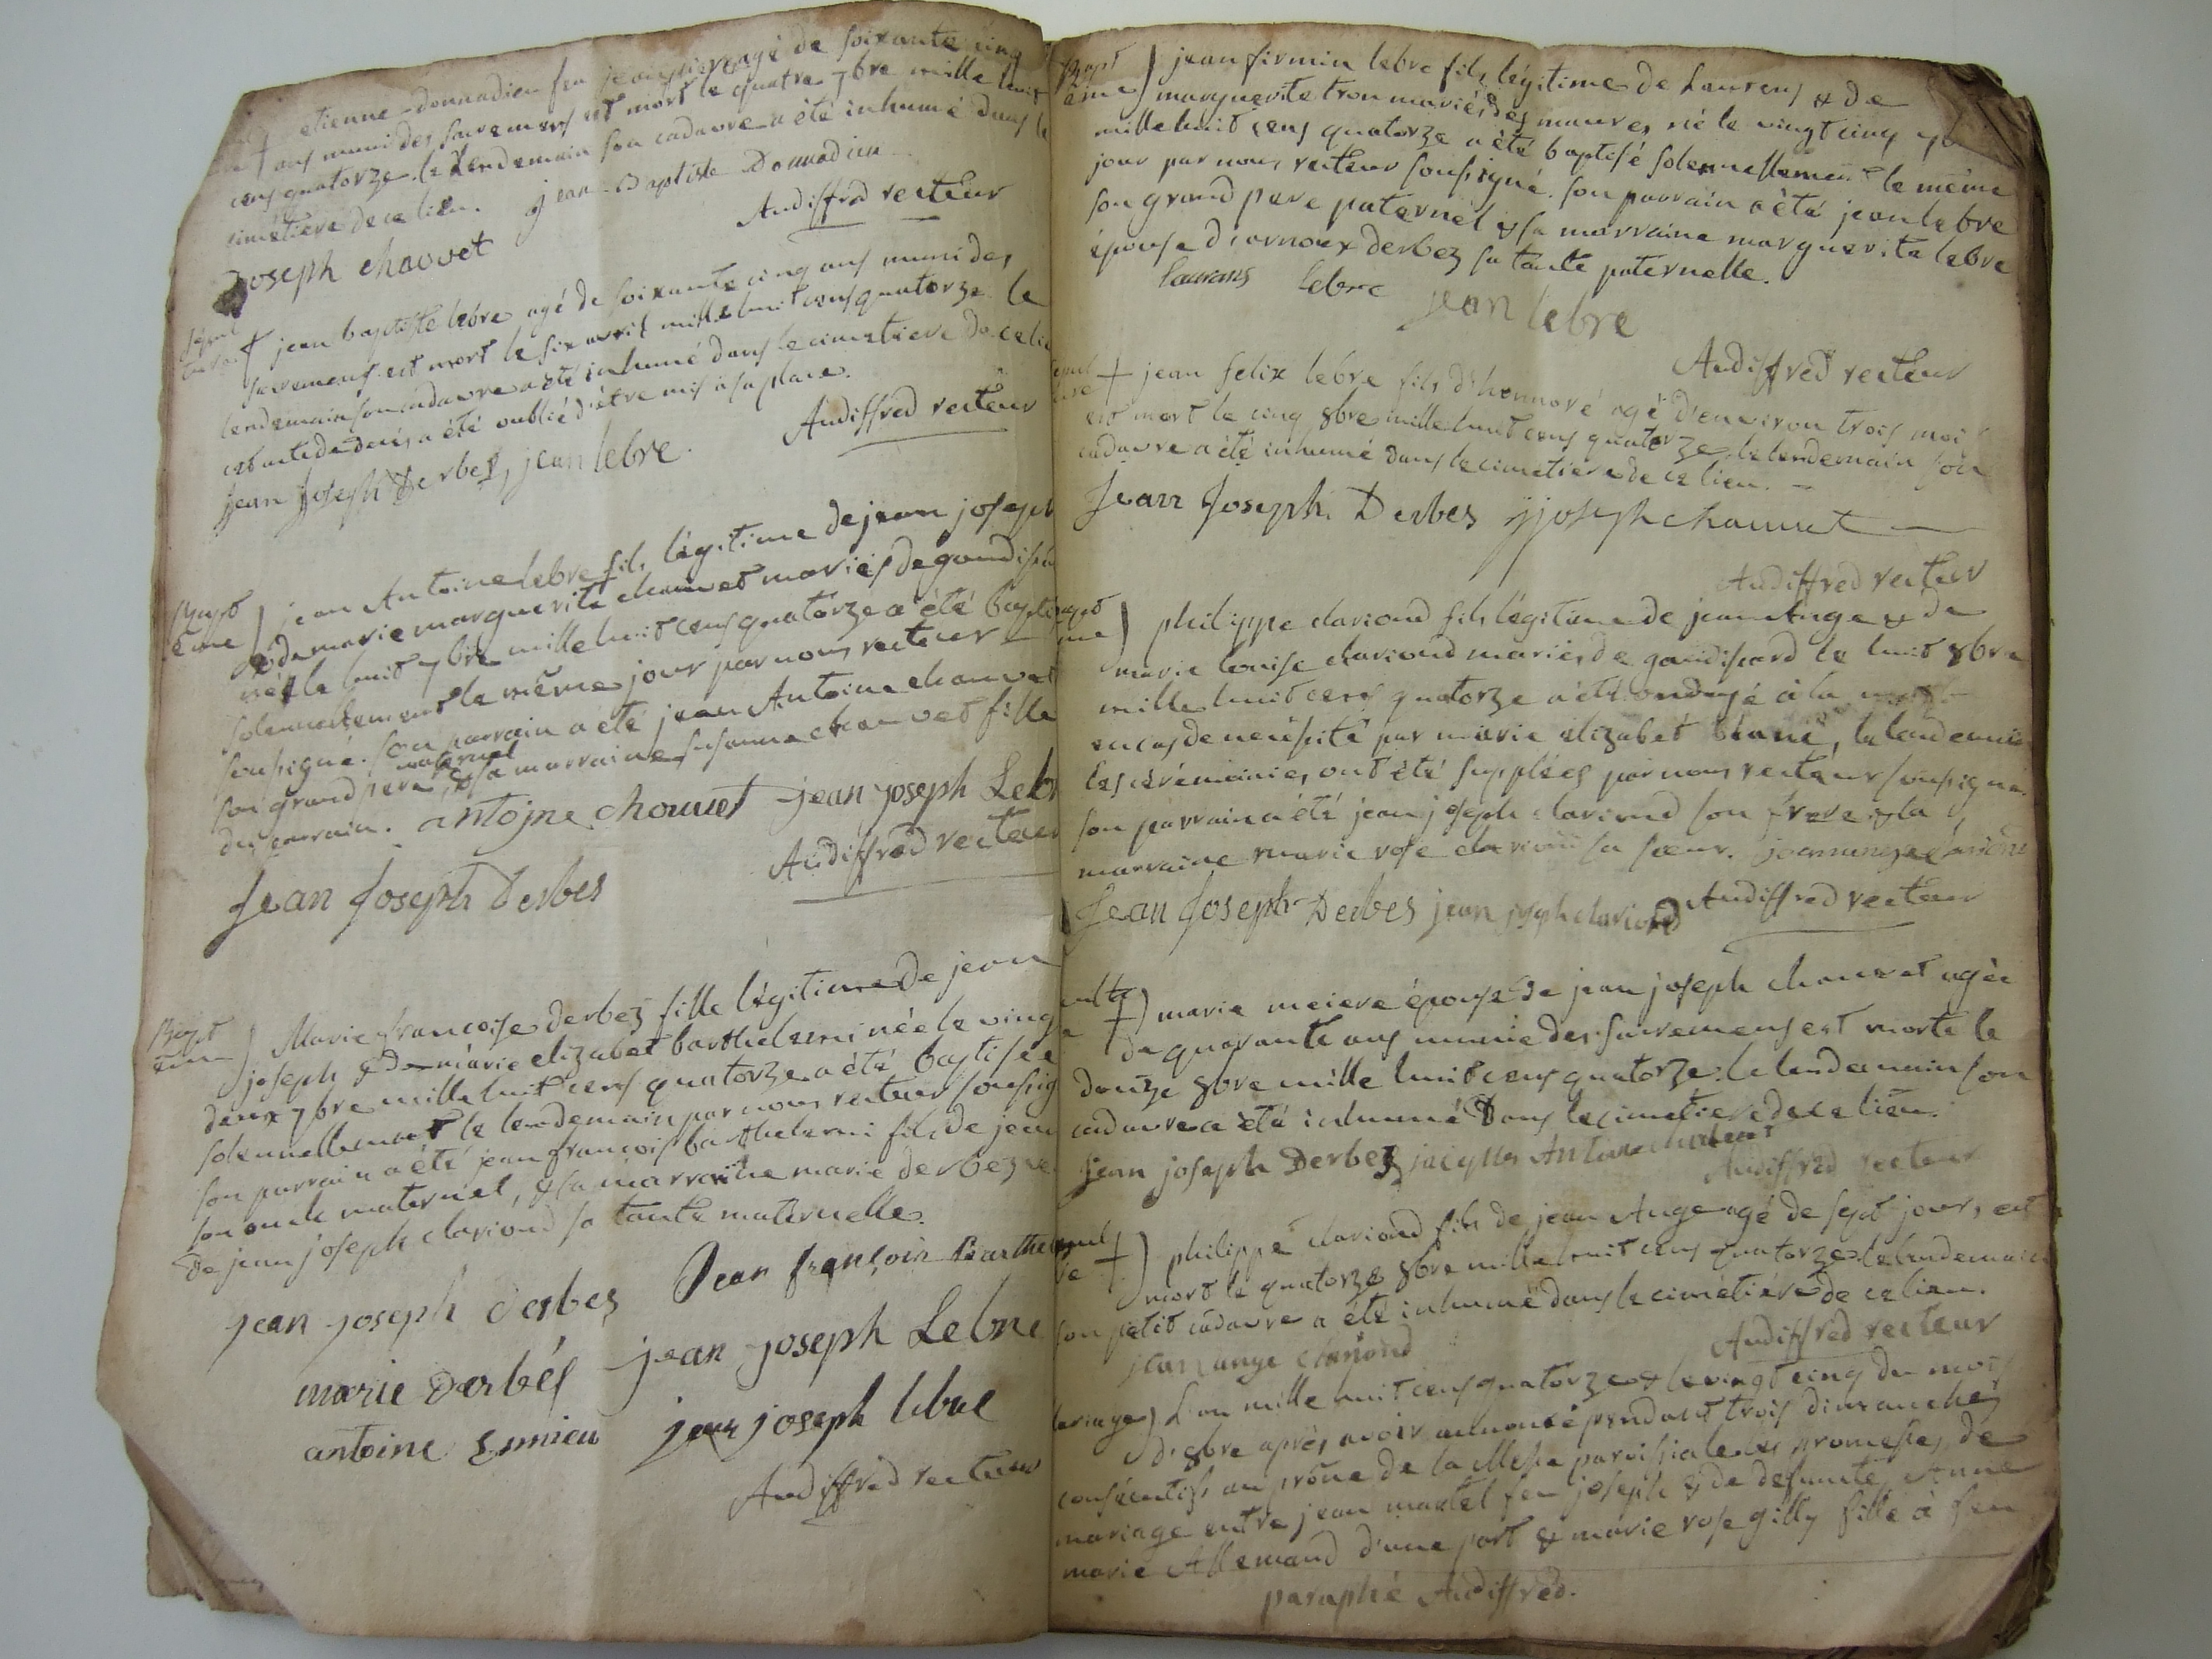 etienne donnadieu feu jean pierre agé de soixante cinq
ans muni des sacremens est mort le quatre 7bre mille huit
cens quatorze. le lendemain son cadavre a été inhumé dans le
cimetiere de ce lieu. jean-Baptiste Donnadieu
Audiffred recteur
Joseph chauvet
sepul
ture † jean baptiste lebre agé de soixante cinq ans muni des
sacremens est mort le six avril mille huit cens quatorze le
lendemain son cadavre a été inhumé dans le cimetiere de ce lieu
a été oublié d'étre mis à sa place.
jean joseph Derbes, jean lebre. Audiffred recteur
Bapt
ême ) jean Antoine lebre fils légitime de jean joseph
& de marie marguerite chauvet mariés de gaudissard
né le huit 7bre mille huit cens quatorze a été baptisé
solennellement le même jour par nous recteur
soussigné. son parrain a été jean Antoine chauvet
son grand pere maternel, & sa marraine susanne chauvet fille
du parrain. antojne chouvet jean joseph Lebr
Audiffred recteur
Jean Joseph Derbes
Bapt
ême ) Marie francoise derbez fille légitime de jean
joseph & de marie elizabet barthelemi née le vingt
deux 7bre mille huit cens quatorze a été baptisée
solennellement le lendemain par nous recteur soussig
son parrain a été jean francois barthelemi fils de jean
son oncle maternel, & sa marraine marie derbez
de jean joseph clariond sa tante maternelle.
jean joseph derbez Jean françois Barthe
marie Derbés jean joseph Lebre
antoine jean joseph lebre
Audiffred recteur
Bapt
ême ) jean firmin lebre fils légitime de Laurens & de
marguerite tron mariés des maures né le vingt cinq 7b
mille huit cens quatorze a été baptisé solennellement le même
jour par nous recteur soussigné. son parrain a été jean lebre
son grand pere paternel & sa marraine marguerite lebre
épouse d'arnoux derbez sa tante paternelle.
laurans lebre jean lebre
Audiffred recteur
sepul
ture † jean felix lebre fils d'honnoré agé d'environ trois mois
est mort le cinq 8bre mille huit cens quatorze, le lendemain son
cadavre a été inhumé dans le cimetiere de ce lieu.
Jean Joseph Derbes joseph chauvet
Audiffred recteur
bapt
ême ) philippe clariond fils légitime de jean Ange & de
marie louise clariond mariés de gaudissard le huit 8bre
mille huit cens quatorze a été ondoyé à la
en cas de necéssité par marie elizabet blanc, le lendemain
les cérémonies ont été supplées par nous recteur soussigné.
son parrain a été jean joseph clariond son frere & la
marraine marie rose clariond sa sœur. jean ange clariond
Jean Joseph Derbes jean joseph clariond Audiffred recteur
sepultu
re † ) marie meiere épouse de jean joseph chauvet agée
de quarante ans munie des sacremens est morte le
douze 8bre mille huit cens quatorze: le lendemain son
cadavre a été inhumé Dans le cimetiere de ce lieu.
jean joseph Derbez jacques Antoine
Audiffred recteur
sepul
re † ) philippe clariond fils de jean Ange agé de sept jours, est
mort le quatorze 8bre mille huit cens quatorze. le lendemain
son petit cadavre a été inhumé dans le cimetiére de ce lieu.
jean ange clariond Audiffred recteur
Mariage ) L'an mille huit cens quatorze & le vingt cinq du mois
d'8bre aprés avoir annoncé pendant trois dimanches
consécutifs au prône de la Messe paroissiale les promesses de
mariage entre jean martel feu joseph & de défunte Anne
marie Allemand d'une part & marie rose gilly fille à feu
paraphé Audiffred.